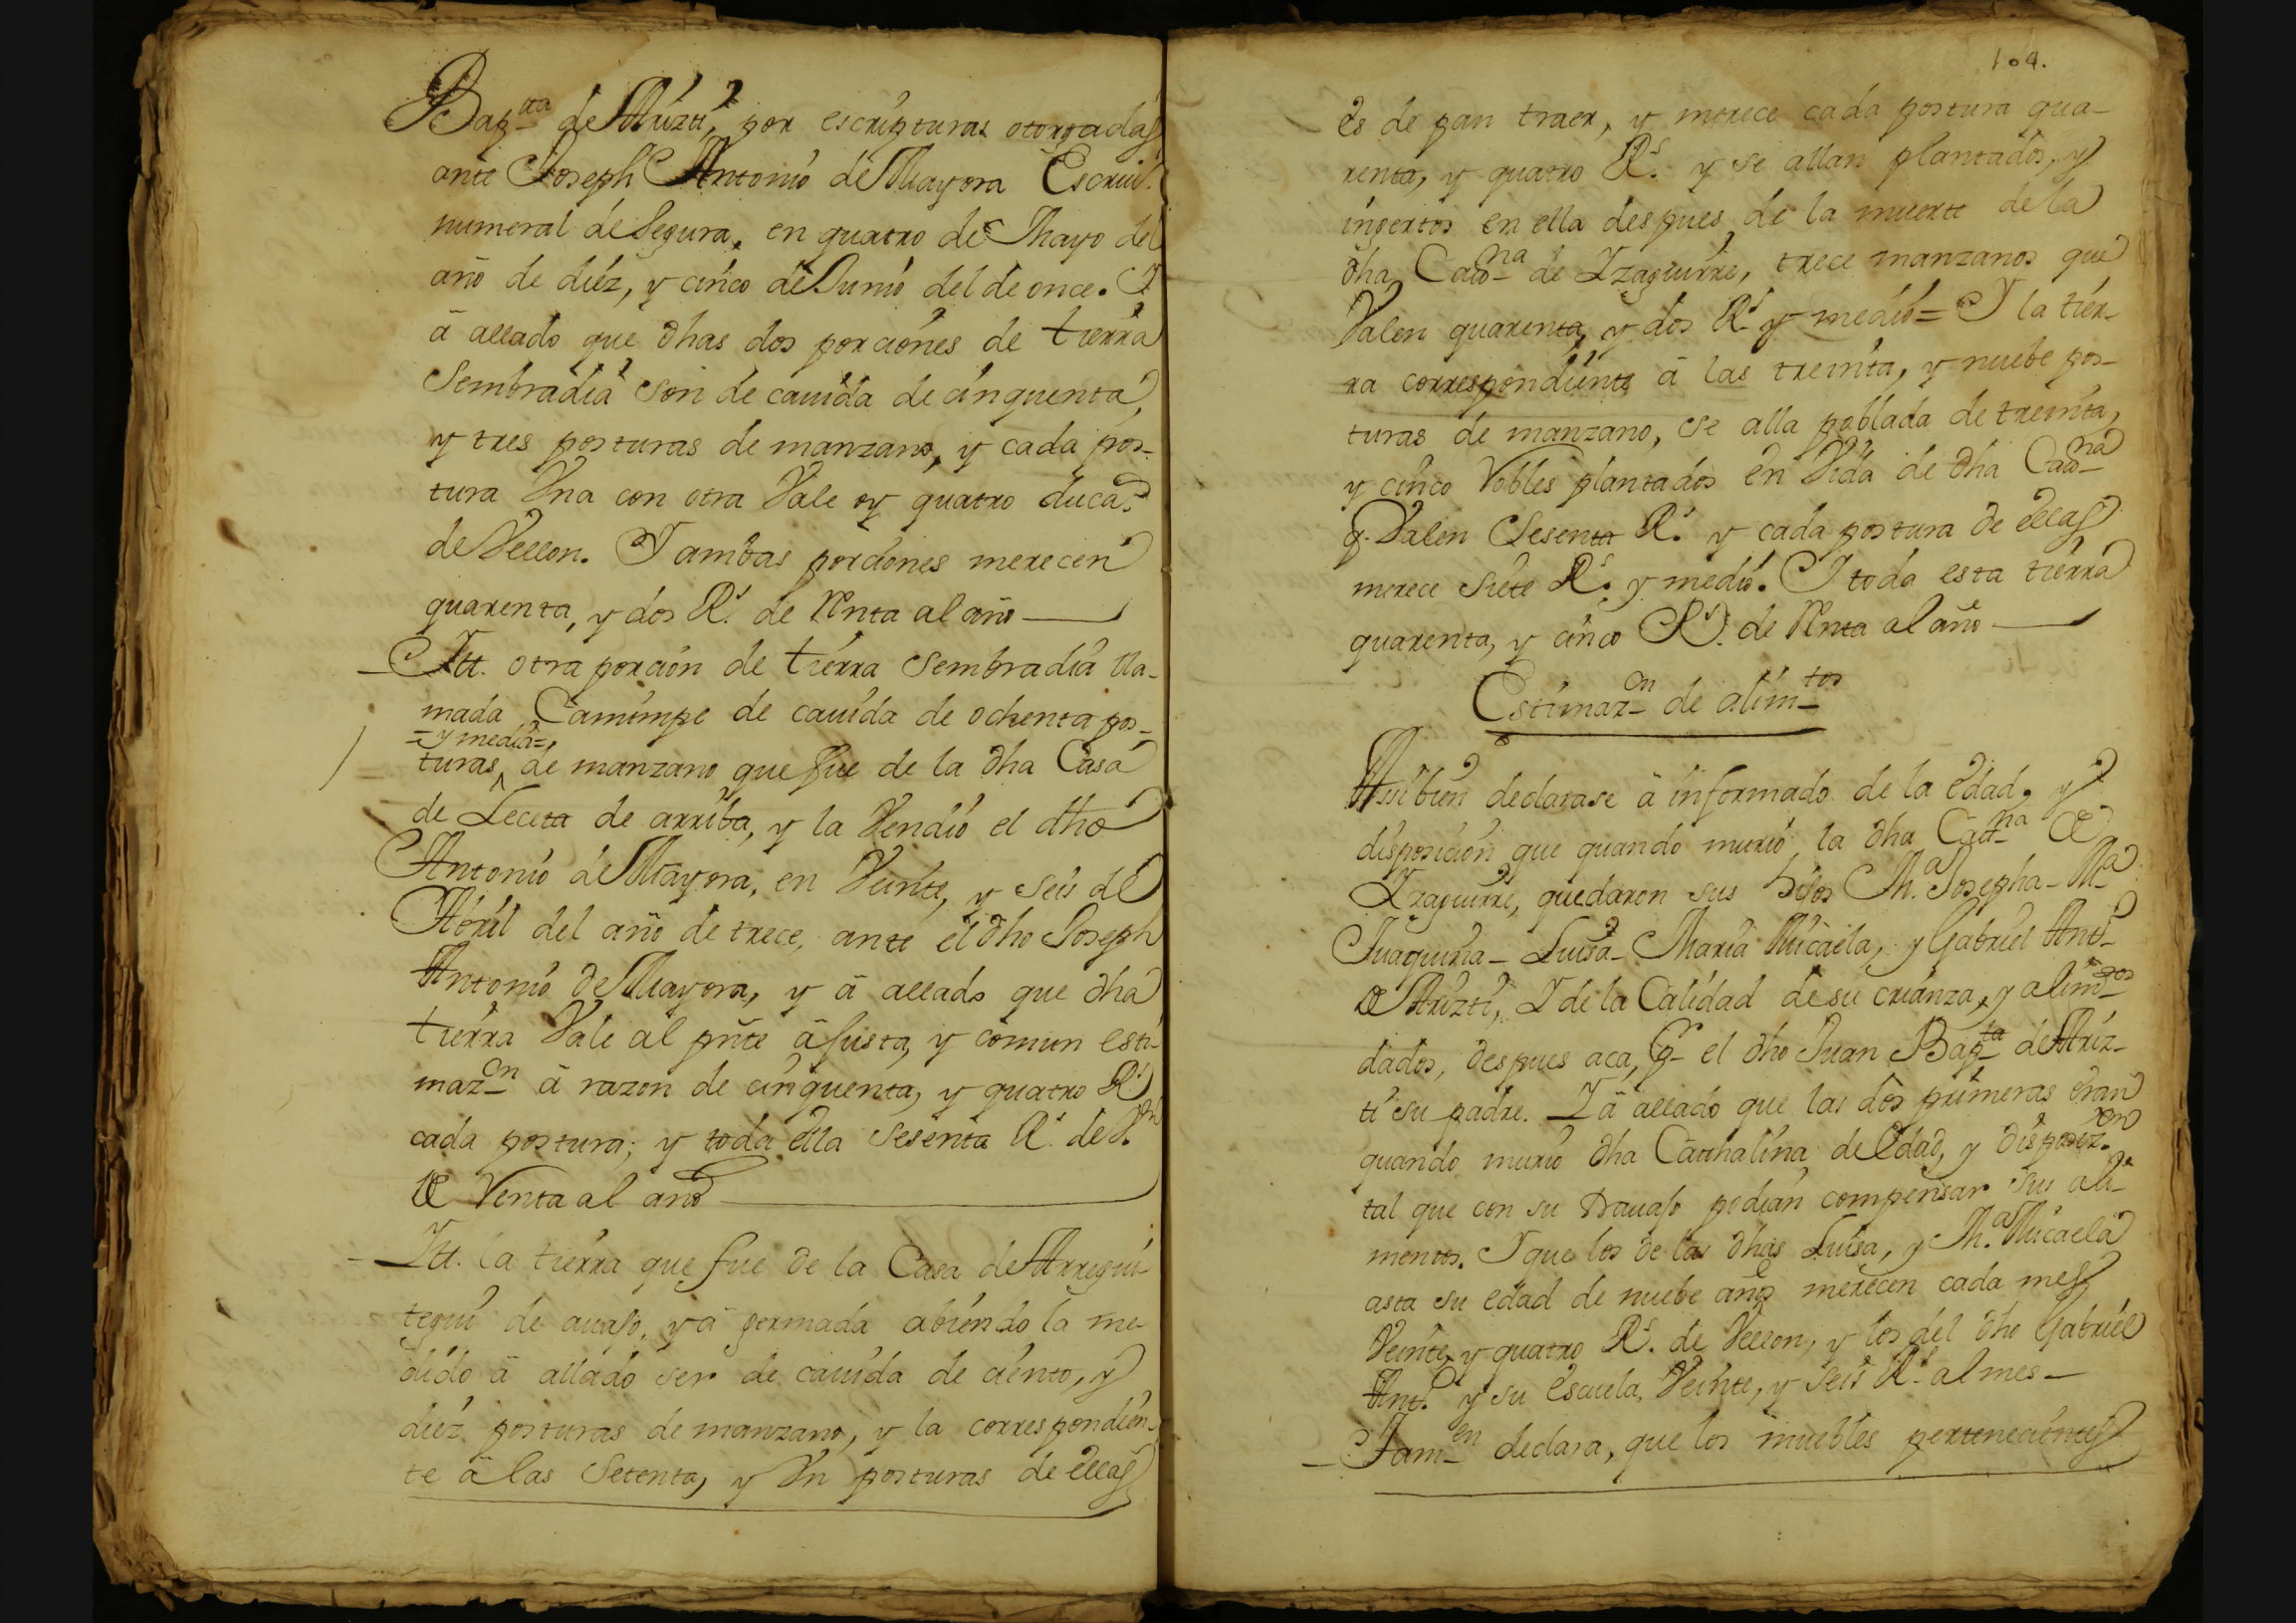 Bap^ta de Aŕizti, por escripturas otorgadas
ante Joseph Antonio de Mayora Escriu.
numeral de Segura, en quatro de Mayo del
año de diéz, y cinco de Junio del de once. Y
ã allado que dhas dos porciones de tierra
Sembradia son de cauida de cinquenta,
y tres posturas de manzano, y cada pos-
tura Vna con otra Vale oy quatro duca.^s
de Vellon. Y ambas porciones merecen
quarenta, y dos R.^s de renta al año
Itt. otra porcion de tierra sembradia lla-
mada Camimpe de cauida de ochenta pos-
=y media=
turas, de manzano que fue de la dha Casa
de Leceta de arriba, y la Vendió el dho
Antonio de Mayora, en Veinte, y seis de
Abril del año de trece, ante el dho Joseph
Antonio de Mayora, y ã allado que dha
tierra Vale al pñte ã justa, y comun esti-
maz^on ã razon de cinquenta, y quatro R^s
cada postura; y toda ella sesenta R.^s de V.^on
de renta al año
Itt. la tierra que fue de la Casa de Arregui-
tegui de auajo, y ã permada abiendo la me-
dido ã allado ser de cauida de ciento, y
diéz posturas de manzano, y la correspondien-
te ã las Setenta, y Vn posturas de ellas
104.
es de pan traer, y merece cada postura qua-
renta, y quatro R.^s y se allan plantados, y
ingertos en ella despues de la muerte de la
dha Cata^na de Yzaguirre, trece manzanos que
Valen quarenta, y dos R.^s y medio= Y la tier-
ra correspondiente ã las treinta, y nuebe pos-
turas de manzano, se alla poblada de treinta,
y cinco robles plantados en Vida de dha Cata^na
q. Valen Sesenta R.^s y cada postura de ellas
merece siete R.^s y medio. Y toda esta tierra
quarenta, y cinco R.^s de renta al año
Estimaz^on de alim^tos
Assi bien declarase ã informado de la edad, y
disposicion que quando murió la dha Cat^na de
Yzaguirre, quedaron sus hijos M.^a Josepha- M^a
Juaquina- Luisa- Maria Micaela, y Gabriel Ant^o
de Arizti, Y de la Calidad de su crianza, y alim^tos
dados, despues aca, p^r el dho Juan Bap^ta de Ariz-
ti su padre. Y ã allado que las dos primeras eran
quando murio dha Cathalina de Edad, y disposiz.^on
tal que con su trauajo podian compensar sus ali-
mentos. Y que los de las dhas Luisa, y M.^a Micaela
asta su edad de nuebe años merecen cada mes
Veinte, y quatro R.^s de Vellon, y los del dho Gabriel
Ant.^o y su Escuela, Veinte, y seis R.^s al mes-
Tam^en declara, que los muebles pertenecientes